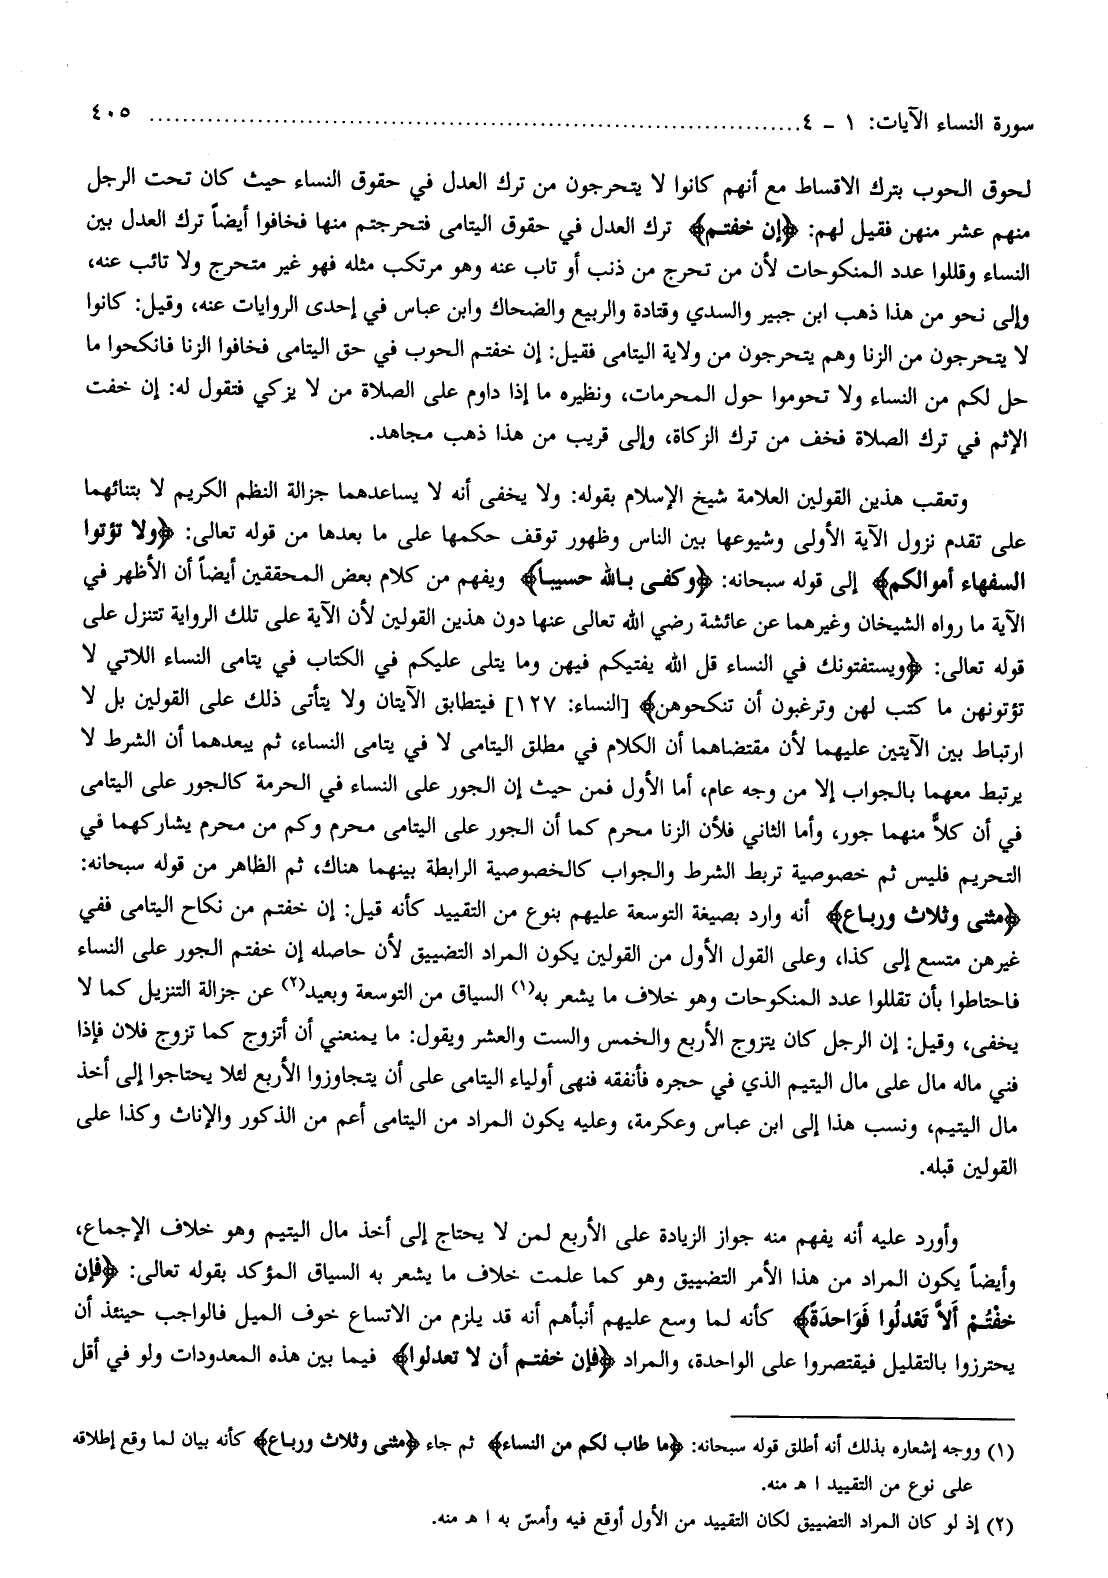 سورة النساء الآيات: ١ - ٤ ........................................ ٤٠٥
لحوق الحوب بترك الاقساط مع أنهم كانوا لا يتحرجون من ترك العدل في حقوق النساء حيث كان تحت الرجل
منهم عشر منهن فقيل لهم: ﴿إن خفتم﴾ ترك العدل في حقوق اليتامى فتحرجتم منها فخافوا أيضاً ترك العدل بين
النساء وقللوا عدد المنكوحات لأن من تحرج من ذنب أو تاب عنه وهو مرتكب مثله فهو غير متحرج ولا تائب عنه،
وإلى نحو من هذا ذهب ابن جبير والسدي وقتادة والربيع والضحاك وابن عباس في إحدى الروايات عنه، وقيل: كانوا
لا يتحرجون من الزنا وهم يتحرجون من ولاية اليتامى فقيل: إن خفتم الحوب في حق اليتامى فخافوا الزنا فانكحوا ما
حل لكم من النساء ولا تحوموا حول المحرمات، ونظيره ما إذا داوم على الصلاة من لا يزكي فتقول له: إن خفت
الإثم في ترك الصلاة فخف من ترك الزكاة، وإلى قريب من هذا ذهب مجاهد.
وتعقب هذين القولين العلامة شيخ الإسلام بقوله: ولا يخفى أنه لا يساعدهما جزالة النظم الكريم لا بتنائهما
على تقدم نزول الآية الأولى وشيوعها بين الناس وظهور توقف حكمها على ما بعدها من قوله تعالى: ﴿ولا تؤتوا
السفهاء أموالكم﴾ إلى قوله سبحانه: ﴿وكفى بالله حسيباً﴾ ويفهم من كلام بعض المحققين أيضاً أن الأظهر في
الآية ما رواه الشيخان وغيرهما عن عائشة رضي الله تعالى عنها دون هذين القولين لأن الآية على تلك الرواية تتنزل على
قوله تعالى: ﴿ويستفتونك في النساء قل الله يفتيكم فيهن وما يتلى عليكم في الكتاب في يتامى النساء اللاتي لا
تؤتونهن ما كتب لهن وترغبون أن تنكحوهن﴾ [النساء: ١٢٧] فيتطابق الآيتان ولا يتأتى ذلك على القولين بل لا
ارتباط بين الآيتين عليهما لأن مقتضاهما أن الكلام في مطلق اليتامى لا في يتامى النساء، ثم يبعدهما أن الشرط لا
يرتبط معهما بالجواب إلا من وجه عام، أما الأول فمن حيث إن الجور على النساء في الحرمة كالجور على اليتامى
في أن كلاً منهما جور، وأما الثاني فلأن الزنا محرم كما أن الجور على اليتامى محرم وكم من محرم يشاركهما في
التحريم فليس ثم خصوصية تربط الشرط والجواب كالخصوصية الرابطة بينهما هناك، ثم الظاهر من قوله سبحانه:
﴿مثنى وثلاث ورباع﴾ أنه وارد بصيغة التوسعة عليهم بنوع من التقييد كأنه قيل: إن خفتم من نكاح اليتامى ففي
غيرهن متسع إلى كذا، وعلى القول الأول من القولين يكون المراد التضييق لأن حاصله إن خفتم الجور على النساء
فاحتاطوا بأن تقللوا عدد المنكوحات وهو خلاف ما يشعر به(١) السياق من التوسعة وبعيد(٢) عن جزالة التنزيل كما لا
يخفى، وقيل: إن الرجل كان يتزوج الأربع والخمس والست والعشر ويقول: ما يمنعني أن أتزوج كما تزوج فلان فإذا
فني ماله مال على مال اليتيم الذي في حجره فأنفقه فنهى أولياء اليتامى على أن يتجاوزوا الأربع لئلا يحتاجوا إلى أخذ
مال اليتيم، ونسب هذا إلى ابن عباس وعكرمة، وعليه يكون المراد من اليتامى أعم من الذكور والإناث وكذا على
القولين قبله.
وأورد عليه أنه يفهم منه جواز الزيادة على الأربع لمن لا يحتاج إلى أخذ مال اليتيم وهو خلاف الإجماع،
وأيضاً يكون المراد من هذا الأمر التضييق وهو كما علمت خلاف ما يشعر به السياق المؤكد بقوله تعالى: ﴿فإن
خفْتُمْ ألاَّ تَعْدلُوا فَوَاحدَةً﴾ كأنه لما وسع عليهم أنبأهم أنه قد يلزم من الاتساع خوف الميل فالواجب حينئذ أن
يحترزوا بالتقليل فيقتصروا على الواحدة، والمراد ﴿فإن خفتم أن لا تعدلوا﴾ فيما بين هذه المعدودات ولو في أقل
(١) ووجه إشعاره بذلك أنه أطلق قوله سبحانه: ﴿ما طاب لكم من النساء﴾ ثم جاء ﴿مثنى وثلاث ورباع﴾ كأنه بيان لما وقع إطلاقه
على نوع من التقييد ا هـ منه.
(٢) إذ لو كان المراد التضييق لكان التقييد من الأول أوقع فيه وأمسّ به ا هـ منه.